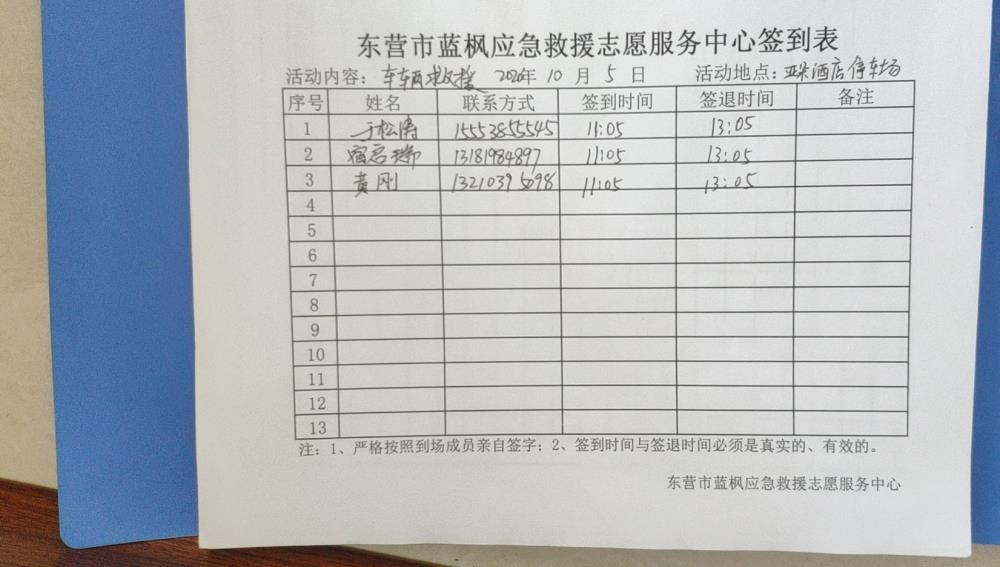 东营市蓝枫应急救援志愿服务中心签到表
活动内容：车辆救援 2020年 10 月 5 日 活动地点：亚朵酒店停车场
序号 姓名 联系方式 签到时间 签退时间 备注
1 于松涛 15553855545 11:05 13:05
2 宿启瑞 13181984897 11:05 13:05
3 黄刚 13210395098 11:05 13:05
4
5
6
7
8
9
10
11
12
13
注：1、严格按照到场成员亲自签字；2、签到时间与签退时间必须是真实的、有效的。
东营市蓝枫应急救援志愿服务中心